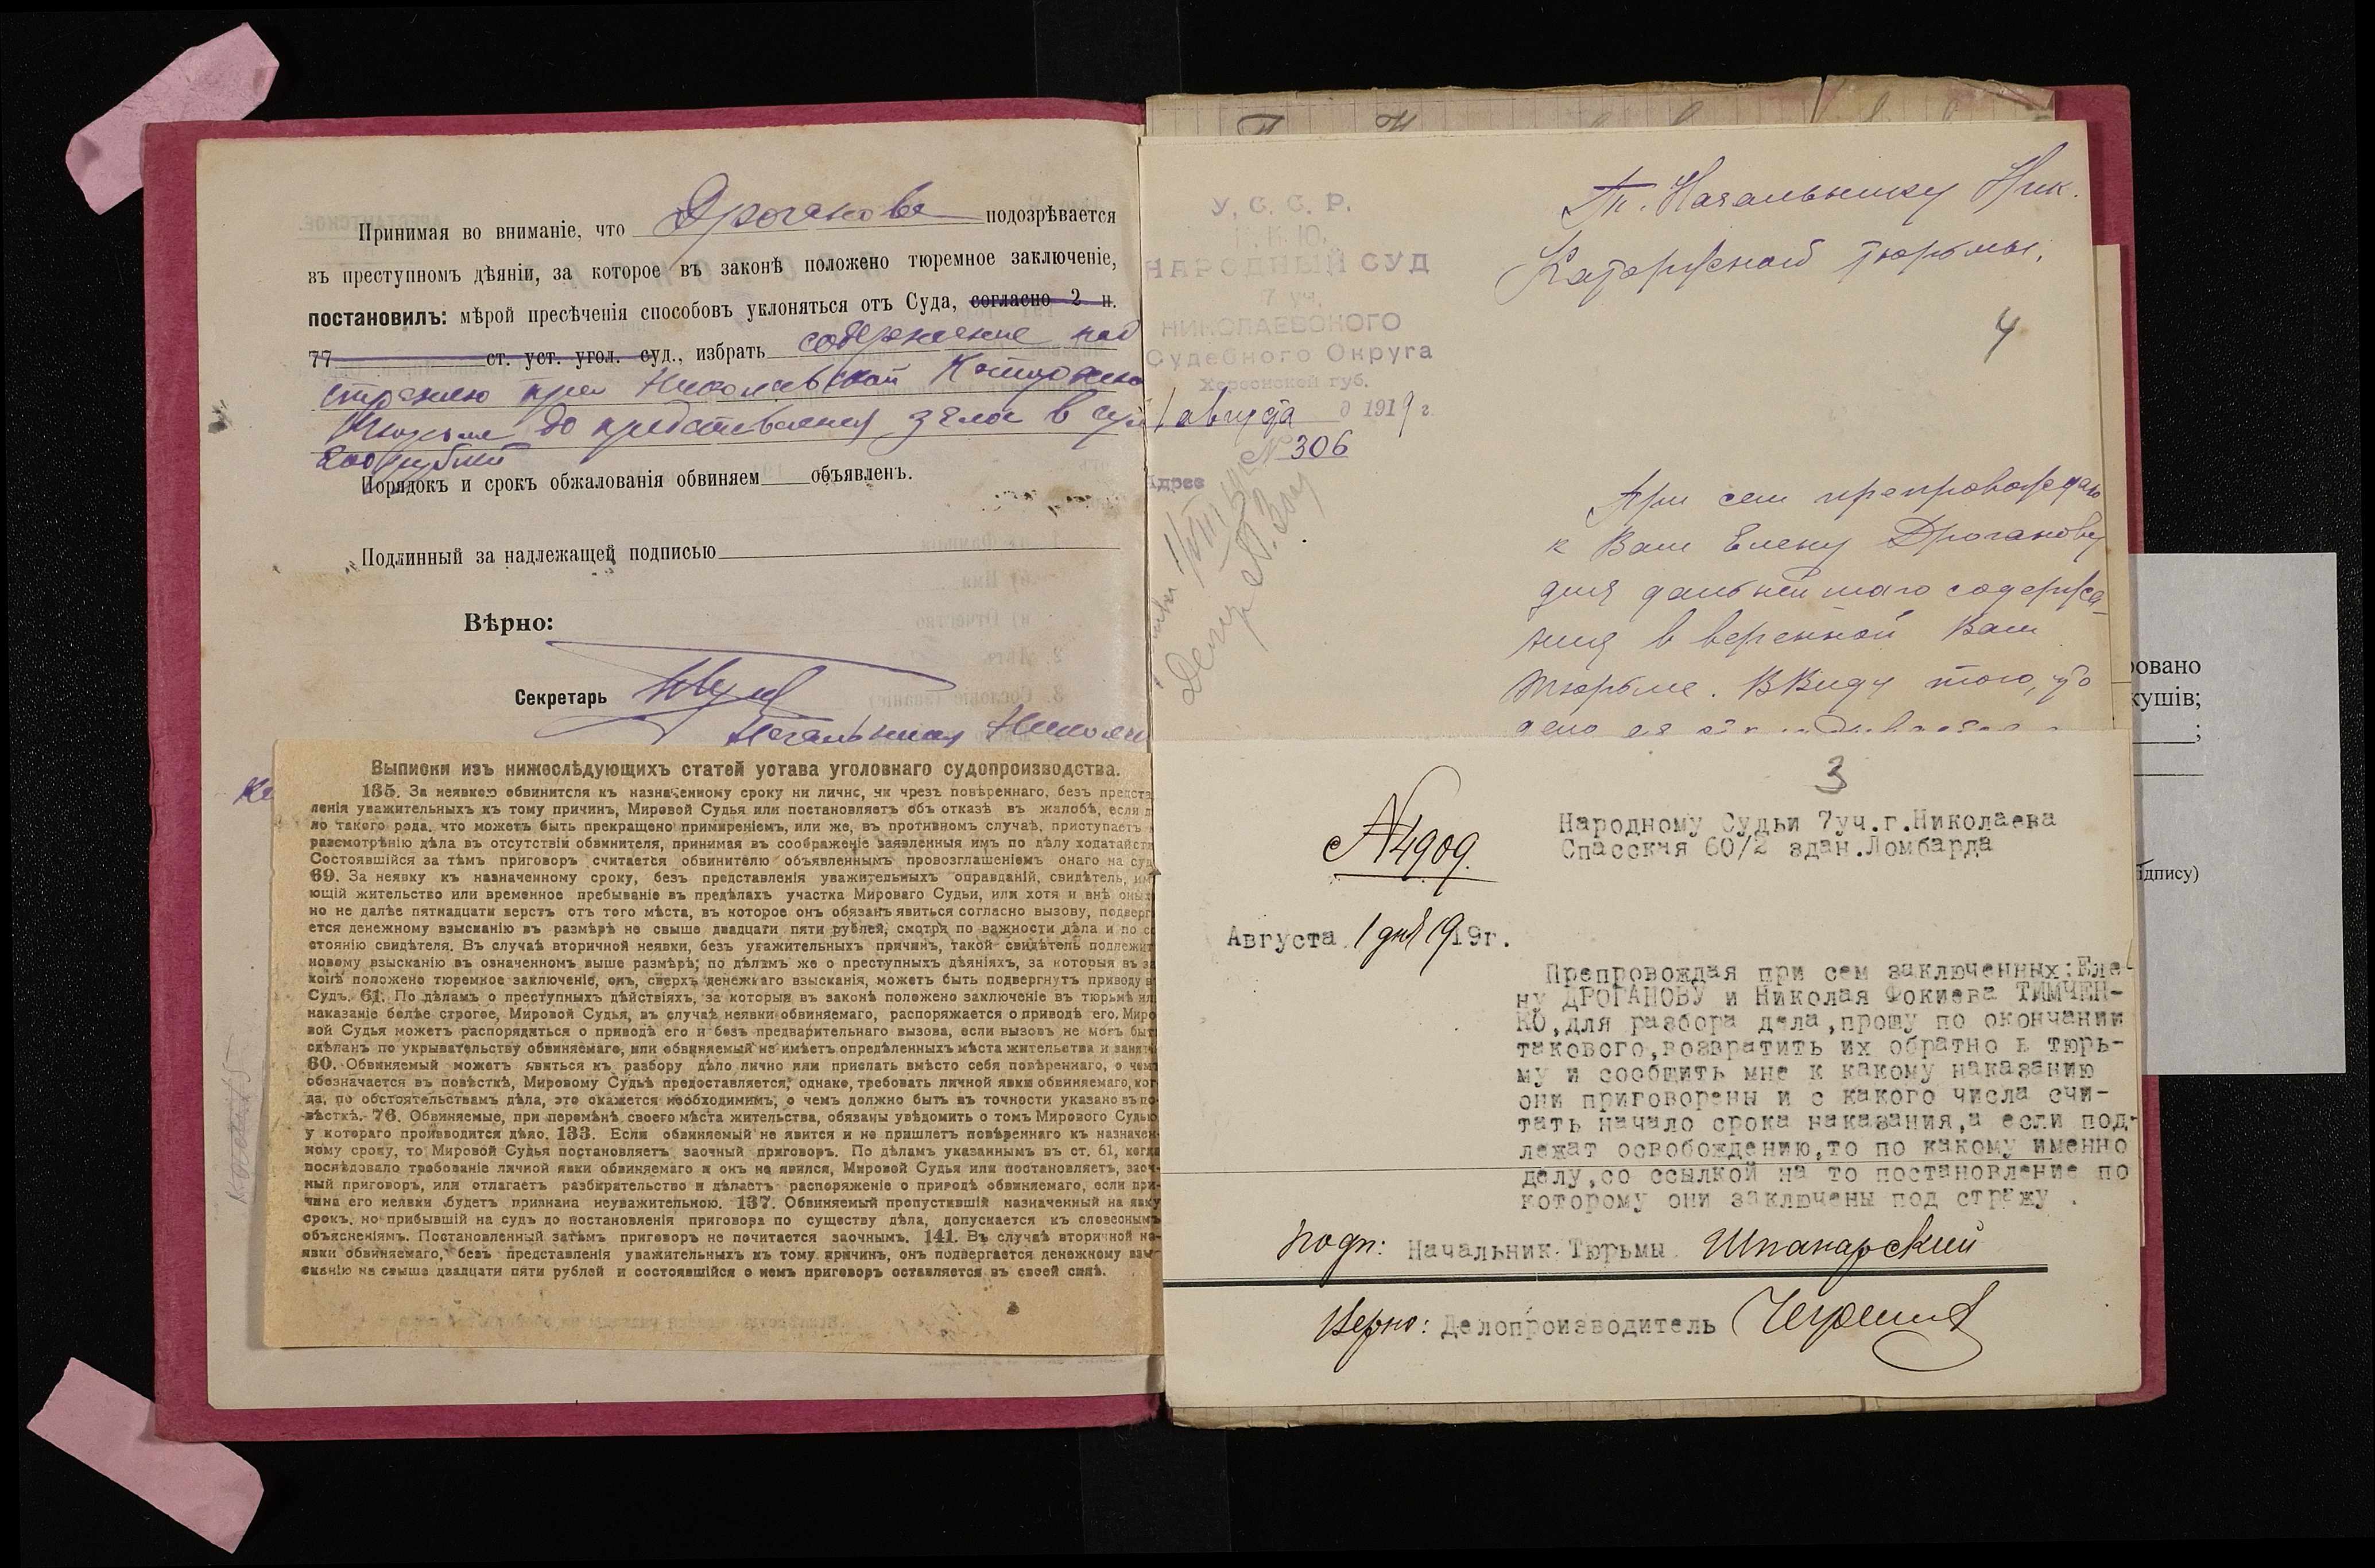 Принимая во вниманіе, что Дроганова подозрѣвается
въ преступномъ дѣяніи, за которое въ законѣ положено тюремное заключеніе,
постановилъ: мѣрой пресѣченія способовъ уклоняться отъ Суда, согласно 2 п.
77 ст. уст. угол. суд., избрать содержание под
стражею при Николаевской
Тюрьме до представления залога в
200 рублей
Порядокъ и срокъ обжалованія обвиняем объявленъ.
Подлинный за надлежащей подписью
Вѣрно:
Секретарь
Выписки изъ нижеслѣдующихъ статей устава уголовнаго судопроизводства.
135. За неявкою обвинителя къ назначенному сроку ни лично, ни чрезъ повѣреннаго, безъ предста
ленія уважительныхъ къ тому причинъ, Мировой Судья или постановляетъ объ отказѣ въ жалобѣ, если д
ло такого рода, что можетъ быть прекращено примиреніемъ, или же, въ противномъ случаѣ, приступаетъ
разсмотрѣнію дѣла въ отсутствіи обвинителя, принимая въ соображеніе заявленныя имъ по дѣлу ходатайст
Состоявшійся за тѣмъ приговоръ считается обвинителю объявленнымъ провозглашеніемъ онаго на суд
69. За неявку къ назначенному сроку, безъ представленія уважительныхъ оправданій, свидѣтель, им
ющій жительство или временное пребываніе въ предѣлахъ участка Мироваго Судьи, или хотя и внѣ оных
но не далѣе пятнадцати верстъ отъ того мѣста, въ которое онъ обязанъ явиться согласно вызову, подверг
ется денежному взысканію въ размѣрѣ не свыше двадцати пяти рублей, смотря по важности дѣла и по со
стоянію свидѣтеля. Въ случаѣ вторичной неявки, безъ уважительныхъ причинъ, такой свидѣтель подлежит
новому взысканію въ означенномъ выше размѣрѣ; по дѣламъ же о преступныхъ дѣяніяхъ, за которыя въ за
конѣ положено тюремное заключеніе, онъ, сверхъ денежнаго взысканія, можетъ быть подвергнутъ приводу в
Судъ. 61. По дѣламъ о преступныхъ дѣйствіяхъ, за которыя въ законѣ положено заключеніе въ тюрьмѣ ил
наказаніе болѣе строгое, Мировой Судья, въ случаѣ неявки обвиняемаго, распоряжается о приводѣ его. Миро
вой Судья можетъ распорядиться о приводѣ его и безъ предварительнаго вызова, если вызовъ не могъ быт
сдѣланъ по укрывательству обвиняемаго, или обвиняемый не имѣетъ опредѣленныхъ мѣста жительства и занят
60. Обвиняемый можетъ явиться къ разбору дѣло лично или прислать вмѣсто себя повѣреннаго, о чем
обозначается въ повѣсткѣ, Мировому Судьѣ предоставляется, однако, требовать личной явки обвиняемаго, ког
да, по обстоятельствамъ дѣла, это окажется необходимимъ, о чемъ должно быть въ точности указано въ по
вѣсткѣ. 76. Обвиняемые, при перемѣнѣ своего мѣста жительства, обязаны увѣдомить о томъ Мирового Судью
у котораго производится дѣло. 133. Если обвиняемый не явится и не пришлетъ повѣреннаго къ назначен
ному сроку, то Мировой Судья постановляетъ заочный приговоръ. По дѣламъ указаннымъ въ ст. 61, когда
послѣдовало требованіе личной явки обвиняемаго и онъ не явился, Мировой Судья или постановляетъ, заоч
ный приговоръ, или отлагаетъ разбирательство и дѣлаетъ распоряженіе о приводѣ обвиняемаго, если при
чина его неявки будетъ признана неуважительною. 137. Обвиняемый пропустившій назначенный на явку
срокъ, но прибывшій на судъ до постановленія приговора по существу дѣла, допускается къ словеснымъ
объясненіямъ. Постановленный затѣмъ приговоръ не почитается заочнымъ. 141. Въ случаѣ вторичной не
явки обвиняемаго, безъ представленія уважительныхъ къ тому причинъ, онъ подвергается денежному взы
сканію не свыше двадцати пяти рублей и состоявшійся о немъ приговоръ оставляется въ своей силѣ.
У. С. С. Р.
Н. К. Ю.
НАРОДНЫЙ СУД
7 уч.
НИКОЛАЕВСКОГО
Судебного Округа
Херсонской губ.
1 августа 1919 г.
№ 306
Адрес
Т. Начальнику Ник.
Каторжной тюрьмы.
4
При сем препровождаю
к Вам Елену Дроганову
для дальнейшаго содержа-
ния в веренной Вам
тюрьме. В Виду того, что
дело ея
3
№4909.
Августа 1 дня 1919г.
Народному Судьи 7уч.г.Николаева
Спасская 60/2 здан.Ломбарда
Препровождая при сем заключенных:Еле-
ну ДРОГАНОВУ и Николая Фокиева ТИМЧЕН-
КО,для разбора дела,прошу по окончании
такового,возвратить их обратно в тюрь-
му и сообщить мне к какому наказанию
они приговорены и с какого числа счи-
тать начало срока наказания,а если под-
лежат освобождению,то по какому именно
делу,со ссылкой на то постановление по
которому они заключены под стражу .
подп: Начальник Тюрьмы Шпанарский
Верно: Делопроизводитель
ровано
кушів;
ідпису)